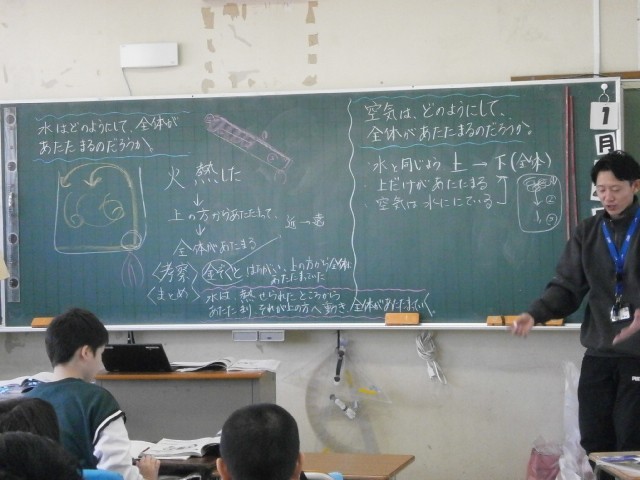 水はどのようにして、全体が
あたたまるのだろうか。
火 熱した
↓
上の方からあたたまって、
↓
全体があたまる
近→遠
〈考察〉 金ぞくとはちがい、上の方から全体に
あたたまっていた
〈まとめ〉 水は、熱せられたところから
あたたまり、それが上の方へ動き、全体があたたまっていく。
空気は、どのようにして、
全体があたたまるのだろうか。
・水と同じよう 上→下(全体)
・上だけがあたたまる
・空気は水ににている
②
1
月